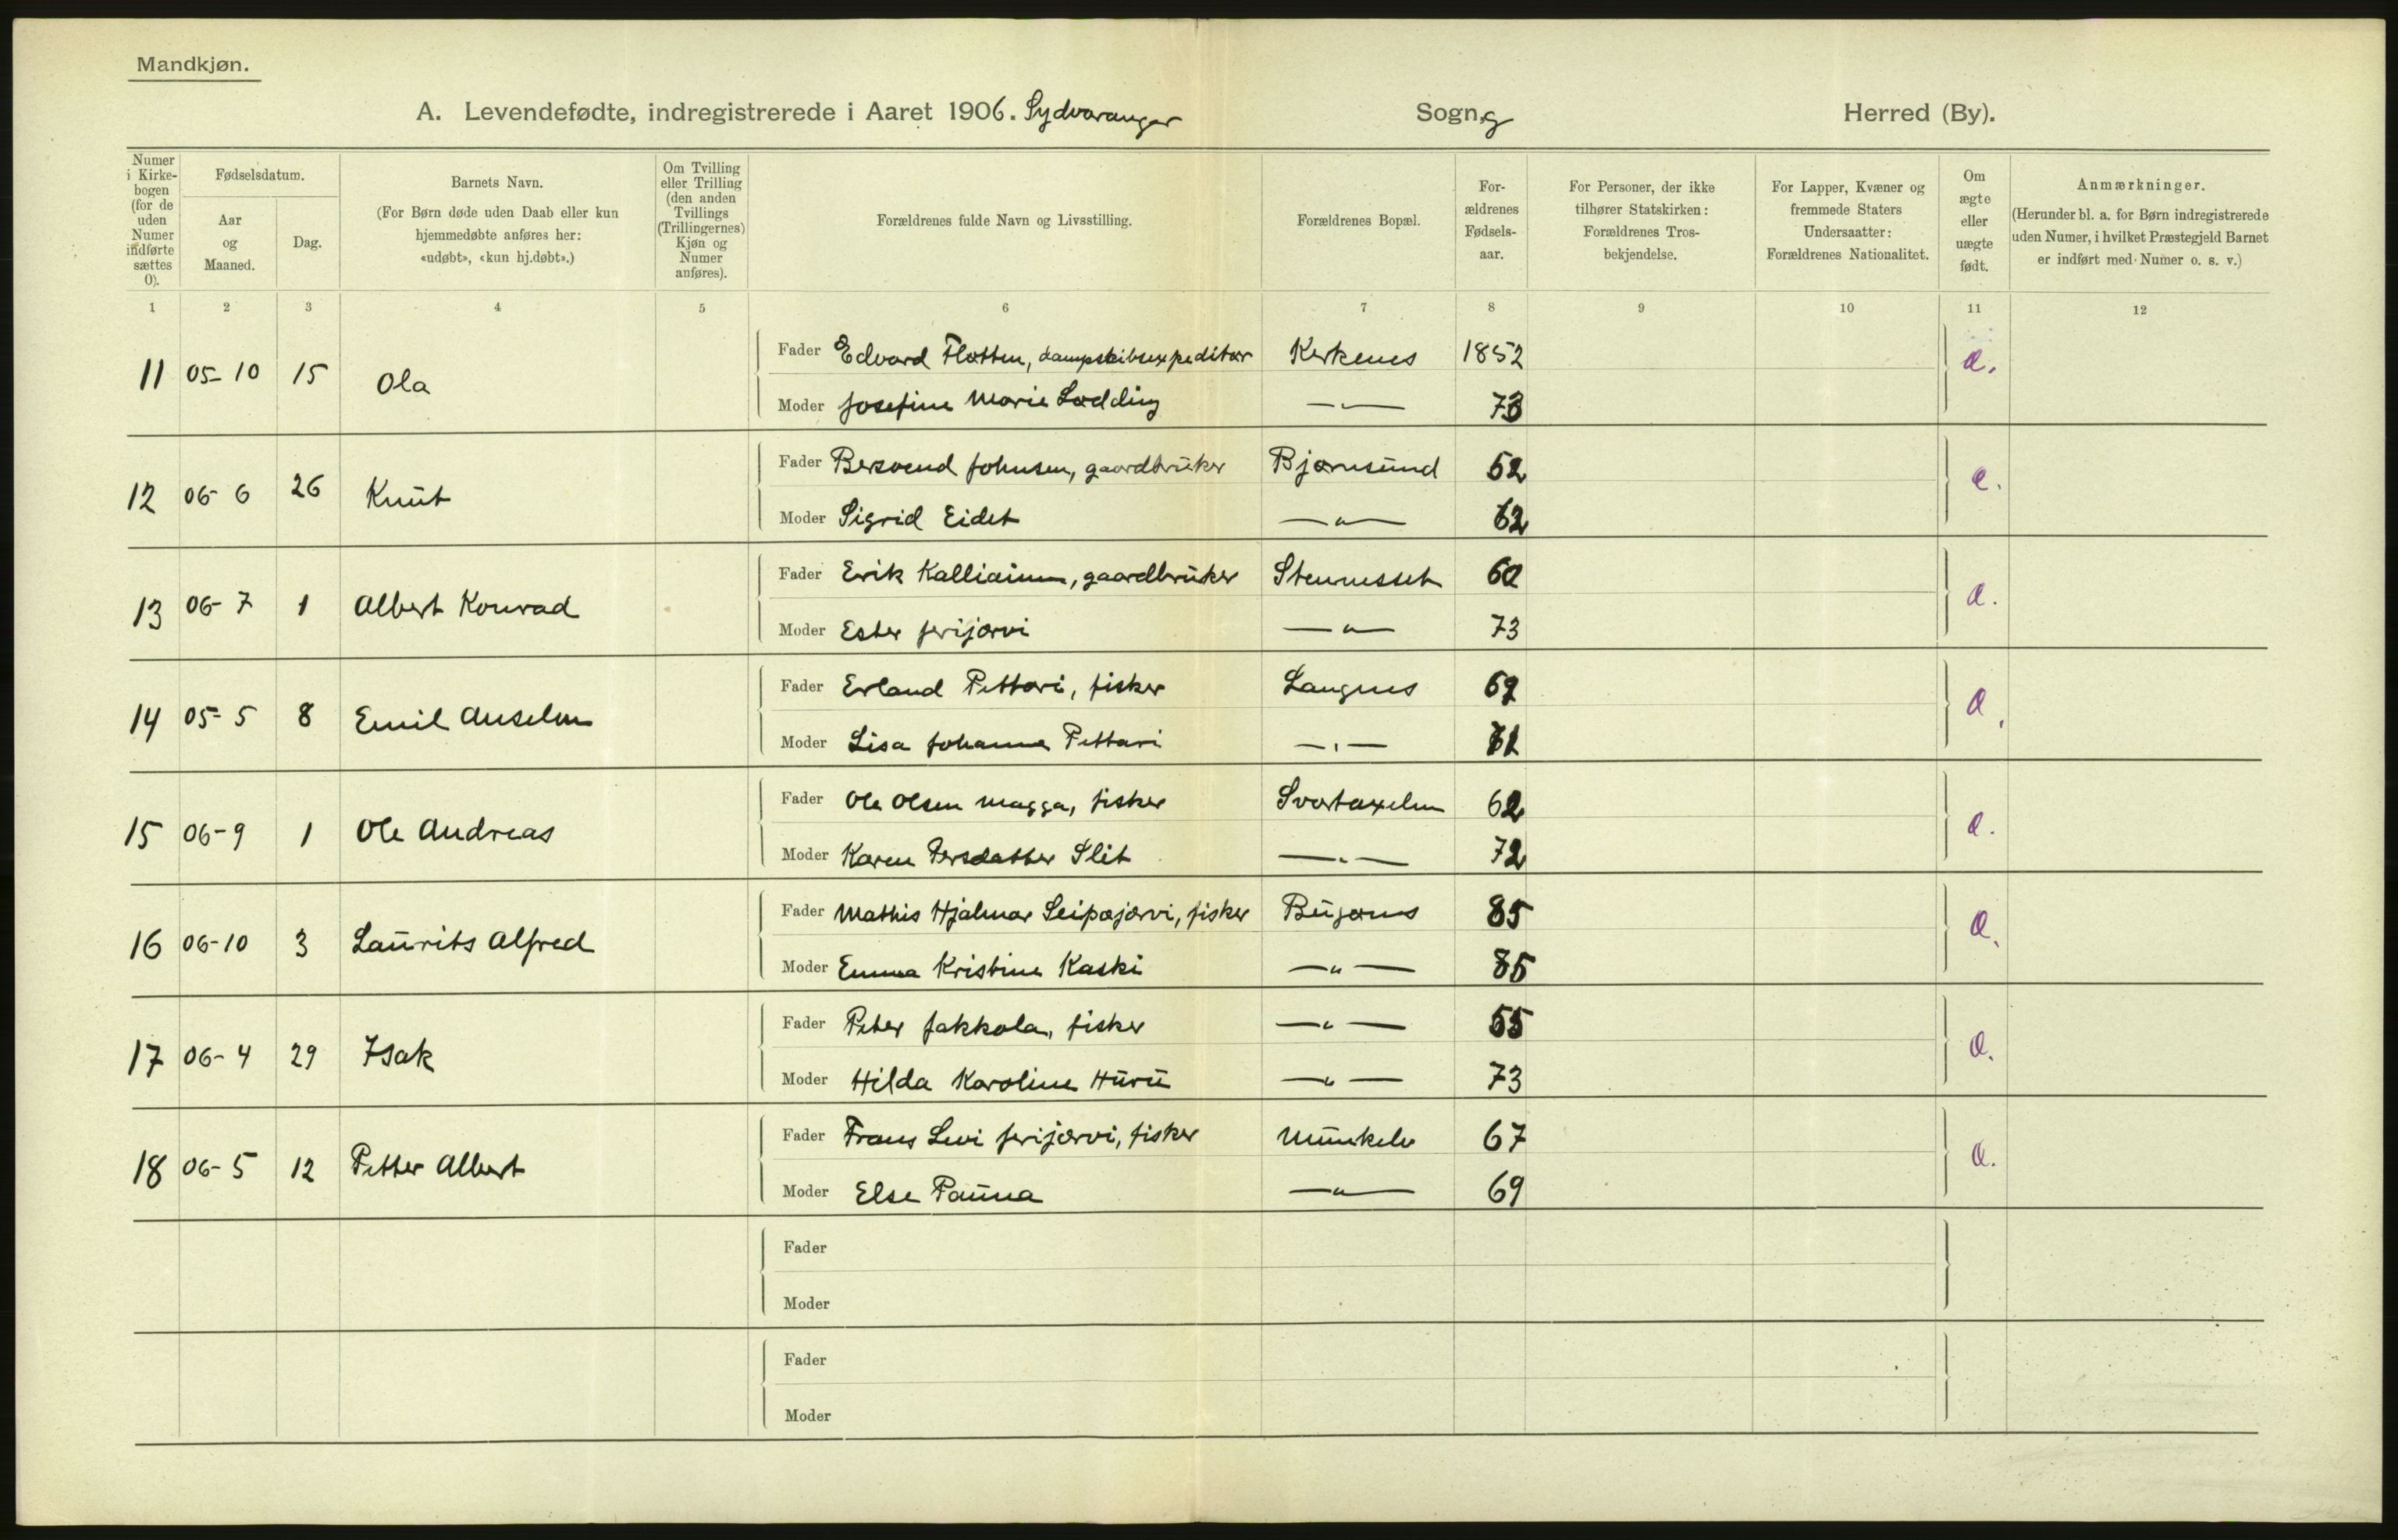 Mandkjøn.
A. Levendefødte, indregistrerede i Aaret 1906. Sydvaranger Sogn, og Herred (By).
Numer i Kirkebogen (for de uden Numer indførte sættes 0).
Fødselsdatum.
Aar og Maaned.
Dag.
Barnets Navn.
(For Børn døde uden Daab eller kun hjemmedøbte anføres her: «udøbt», «kun hj.døbt».)
Om Tvilling eller Trilling (den anden Tvillings (Trillingernes) Kjøn og Numer anføres).
Forældrenes fulde Navn og Livsstilling.
Forældrenes Bopæl.
Forældrenes Fødselsaar.
For Personer, der ikke tilhører Statskirken: Forældrenes Trosbekjendelse.
For Lapper, Kvæner og fremmede Staters Undersaatter: Forældrenes Nationalitet.
Om ægte eller uægte født.
Anmærkninger.
(Herunder bl. a. for Børn indregistrerede uden Numer, i hvilket Præstegjeld Barnet er indført med Numer o. s. v.)
1 2 3 4 5 6 7 8 9 10 11 12
11 05-10 15 Ola Fader Edvard Flotten, dampskibsexpeditør Kirkenes 1852
Moder Josefine Marie Lødding —„— 73
12 06-6 26 Knut Fader Bersvend Johnsen, gaardbruker Bjørnsund 52
Moder Sigrid Eidet —„— 62
13 06-7 1 Albert Konrad Fader Erik Kalliainen, gaardbruker 60
Moder Ester Jerijærvi —„— 73
14 05-5 8 Emil Anselm Fader Erland Pettari, fisker Langnes
Moder Lisa Johanna Pettari —„—
15 06-9 1 Ole Andreas Fader Ole Olsen Magga, fisker Svartaxelen 62
Moder Karen Persdatter Slit —„— 72
16 06-10 3 Laurits Alfred Fader Mathis Hjalmar Seipæjærvi, fisker Bugønes 85
Moder Emma Kristine Kaski —„— 85
17 06-4 29 Isak Fader Peter Jakkola, fisker —„— 55
Moder Hilda Karoline Huru —„— 73
18 06-5 12 Petter Albert Fader Frans Levi Jerijærvi, fisker Munkelv 67
Moder Else Pauna —„— 69
Fader
Moder
Fader
Moder